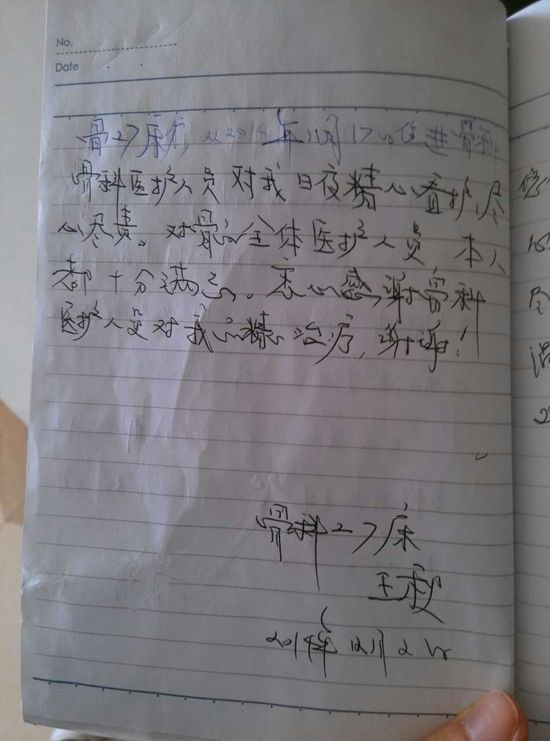 No.
Date
骨27床,从2014年11月17日住进骨科
骨科医护人员对我日夜精心看护,尽
心尽责。对骨科全体医护人员 本人
都十分满意。衷心感谢骨科
医护人员对我的精心治疗,谢谢!
骨科27床
王
2014年12月2日